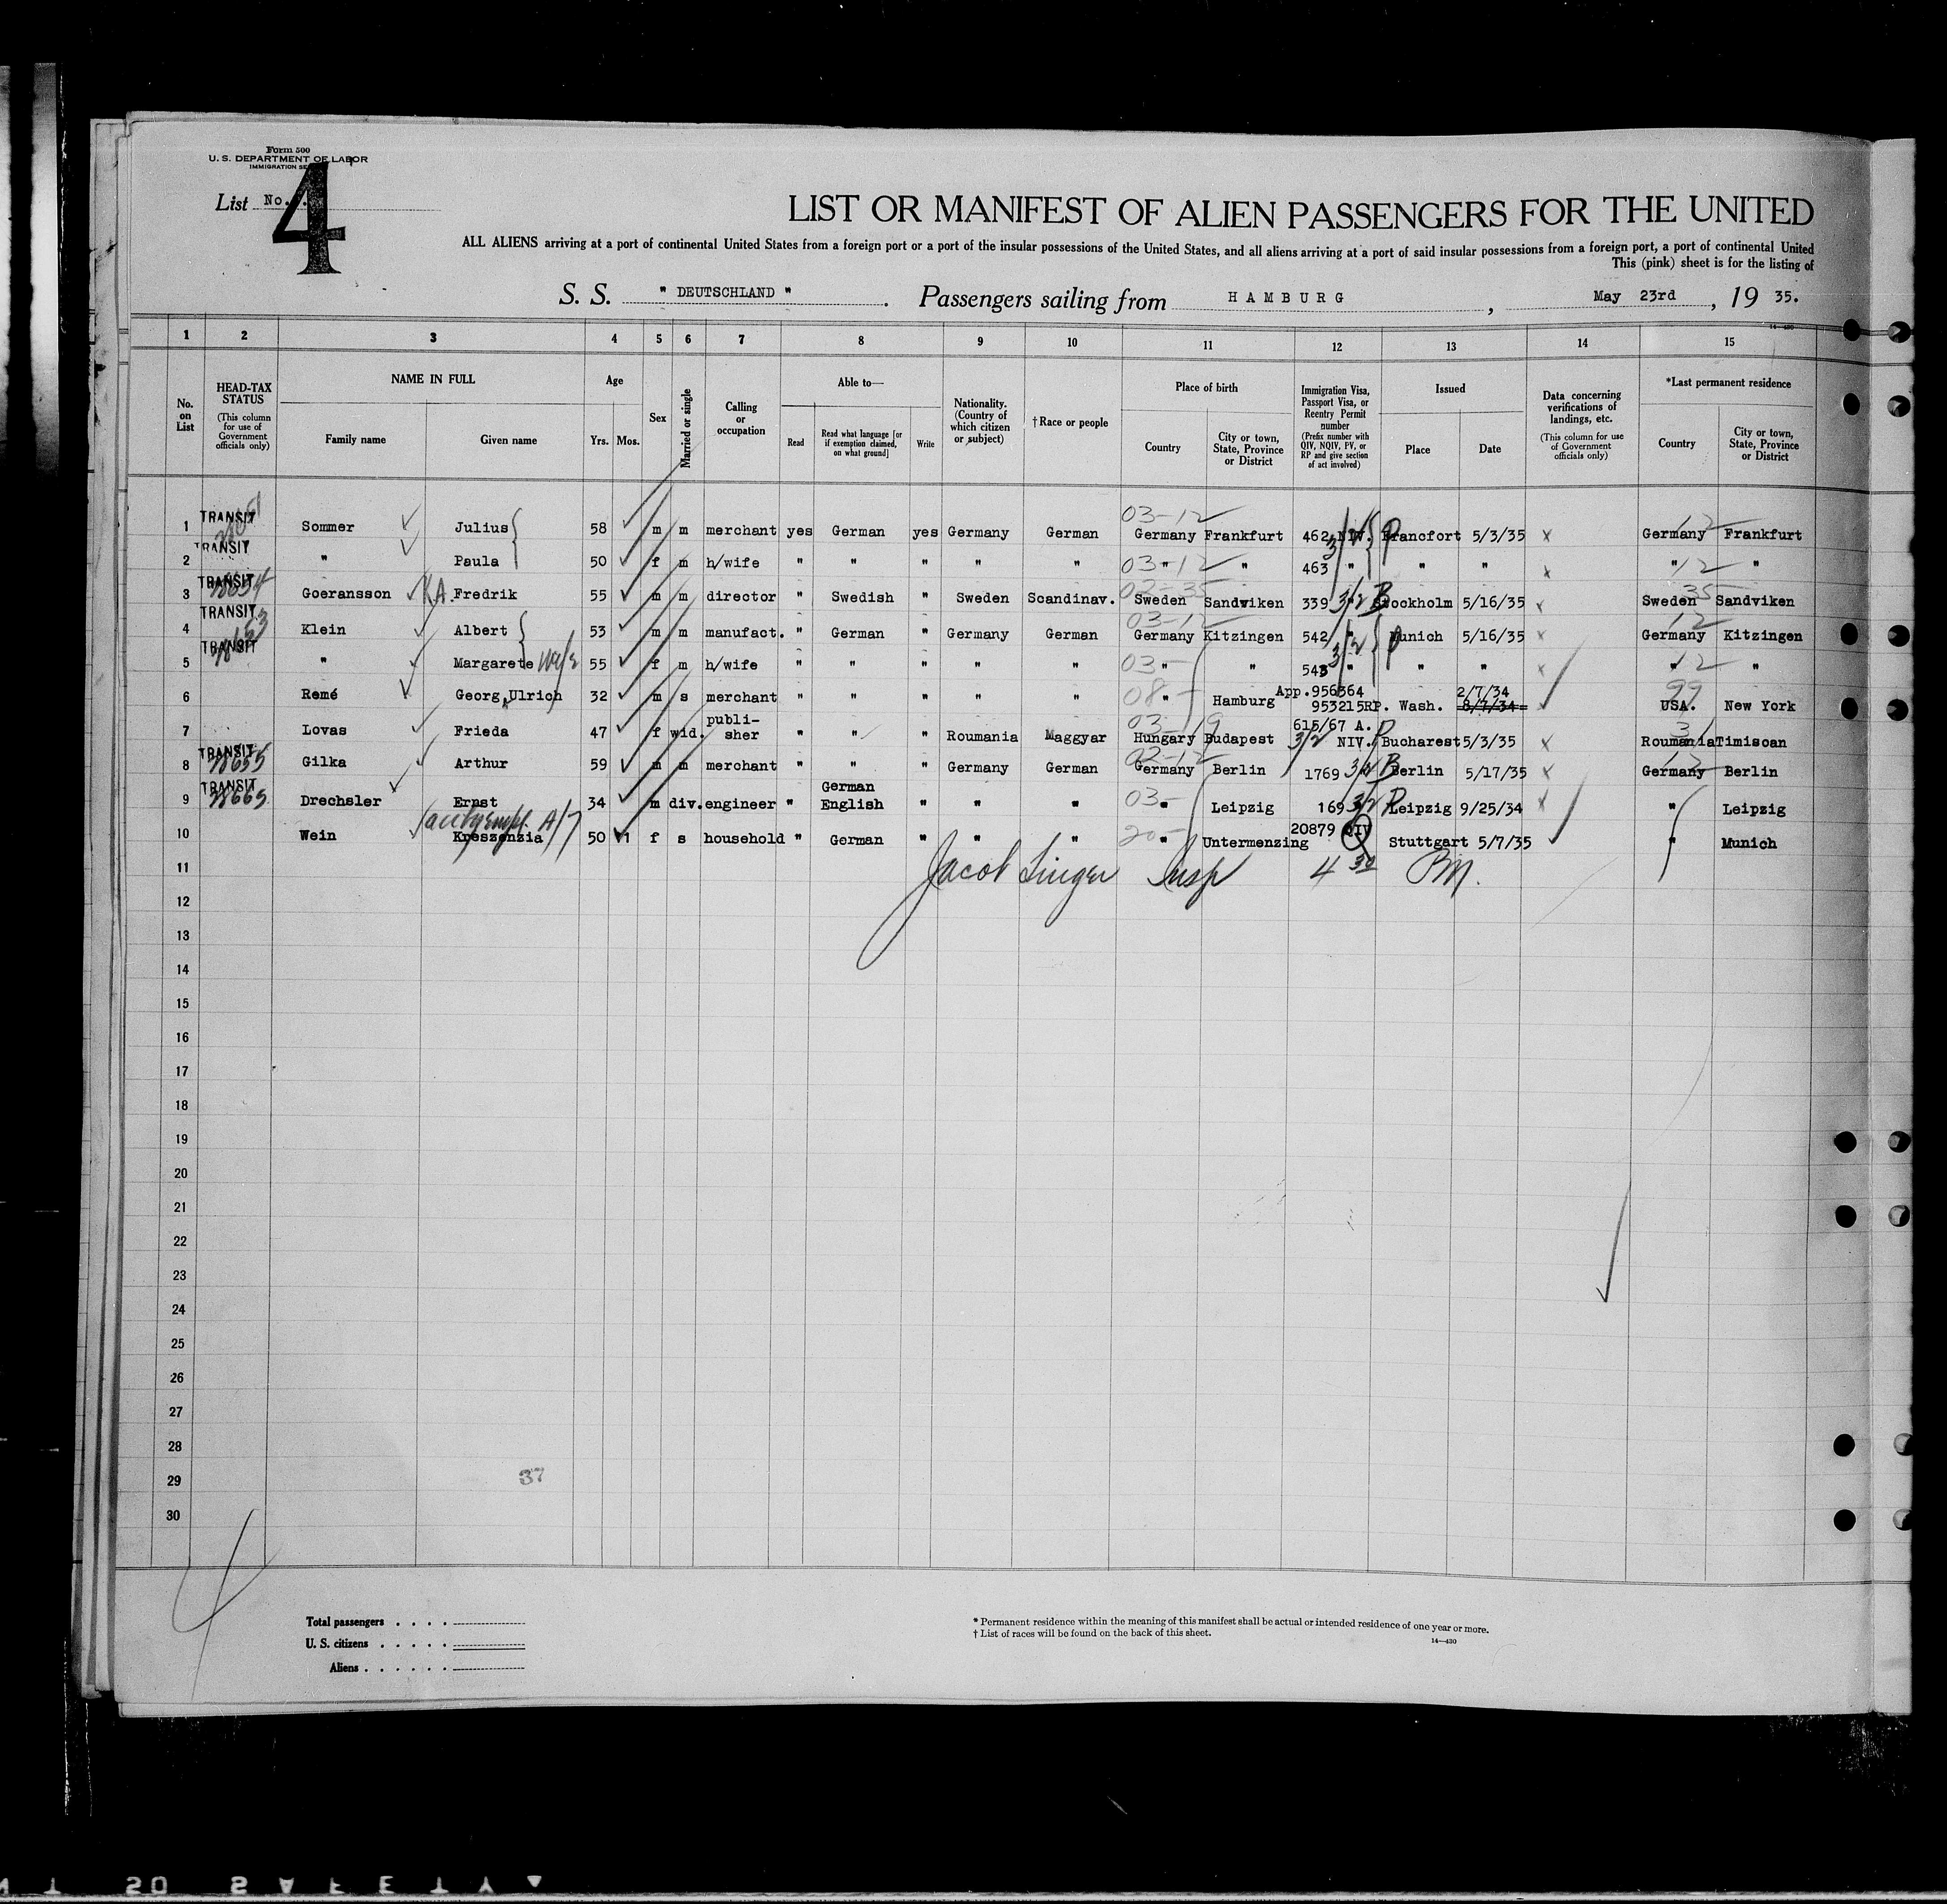 Form 500
U. S. DEPARTMENT OF LABOR
List No. 4
LIST OR MANIFEST OF ALIEN PASSENGERS FOR THE UNITED
ALL ALIENS arriving at a port of continental United States from a foreign port or a port of the insular possessions of the United States, and all aliens arriving at a port of said insular possessions from a foreign port, a port of continental United
This (pink) sheet is for the listing of
S. S. " DEUTSCHLAND " . Passengers sailing from HAMBURG , May 23rd , 19 35.
1 2 3 4 5 6 7 8 9 10 11 12 13 14 15
No. on List
HEAD-TAX STATUS (This column for use of Government officials only)
NAME IN FULL Family name Given name
Age Yrs. Mos.
Sex
Married or single
Calling or occupation
Able to— Read Read what language [or if exemption claimed, on what ground] Write
Nationality. (Country of which citizen or subject)
† Race or people
Place of birth Country City or town, State, Province or District
Immigration Visa, Passport Visa, or Reentry Permit number (Prefix number with QIV, NQIV, PV, or RP and give section of act involved)
Issued Place Date
Data concerning verifications of landings, etc. (This column for use of Government officials only)
*Last permanent residence Country City or town, State, Province or District
1 TRANSIT Sommer Julius 58 m m merchant yes German yes Germany German 03-12 Germany Frankfurt 462 NIV. 3/2 P Francfort 5/3/35 x Germany 12 Frankfurt
2 TRANSIT " Paula 50 f m h/wife " " " " " 03-12 " " 463 " " " x " 12 "
3 TRANSIT Goeransson K.A. Fredrik 55 m m director " Swedish " Sweden Scandinav. 02-35 Sweden Sandviken 339 3/2 B Stockholm 5/16/35 x Sweden 35 Sandviken
4 TRANSIT Klein Albert 53 m m manufact. " German " Germany German 03-12 Germany Kitzingen 542 " 3/2 P Munich 5/16/35 x Germany 12 Kitzingen
5 TRANSIT " Margarete wife 55 f m h/wife " " " " " 03- " " 543 " " " x " 12 "
6 Remé Georg Ulrich 32 m s merchant " " " " " 08- " Hamburg App.956364 953215RP. Wash. 2/7/34 8/7/34 x 99 USA. New York
7 Lovas Frieda 47 f wid. publisher " " " Roumania Maggyar 03-19 Hungary Budapest 615/67 A. 3/2 NIV. P Bucharest 5/3/35 x Roumania 31 Timisoan
8 TRANSIT 78655 Gilka Arthur 59 m m merchant " " " Germany German 02-12 Germany Berlin 1769 3/2 B Berlin 5/17/35 x Germany 12 Berlin
9 TRANSIT 78665 Drechsler Ernst 34 m div. engineer " German English " " " 03- " Leipzig 169 3/2 P Leipzig 9/25/34 x " Leipzig
10 Wein Kreszenzia A/7 50 f s household " German " " " 20- " Untermenzing 20879 QIV Q Stuttgart 5/7/35 " Munich
11 Jacob Singer Insp 4 30 PM.
12
13
14
15
16
17
18
19
20
21
22
23
24
25
26
27
28
29 37
30
Total passengers . . . .
U. S. citizens . . . . .
Aliens . . . . . .
* Permanent residence within the meaning of this manifest shall be actual or intended residence of one year or more.
† List of races will be found on the back of this sheet.
14—430
SAFETY